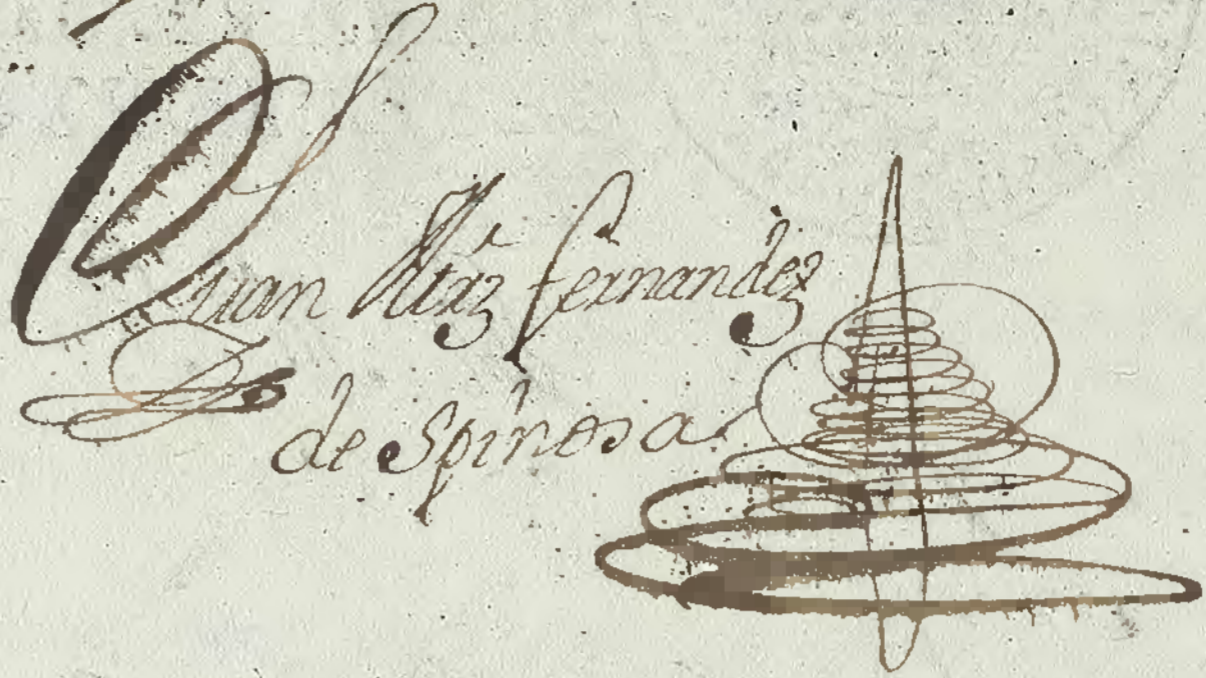 Juan fernandez
de Spinosa